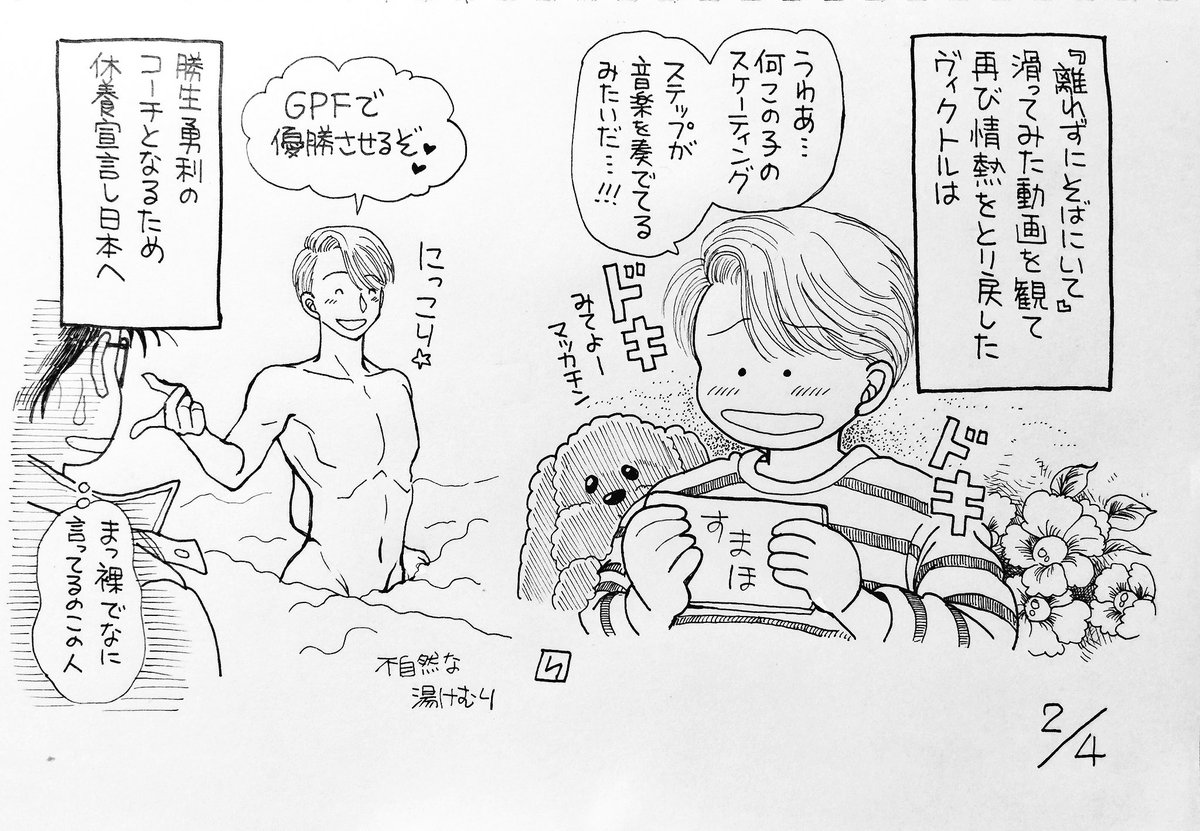 『離れずにそばにいて』
滑ってみた動画を観て
再び情熱をとり戻した
ヴィクトルは
うわあ…
何この子の
スケーティング
ステップが
音楽を奏でてる
みたいだ…!!!
ドキ
みてよー
マッカチン
ドキ
すまほ
GPFで
優勝させるぞ♥♥
にっこり☆
勝生勇利の
コーチとなるため
休養宣言し日本へ
まっ裸でなに
言ってるのこの人
不自然な
湯けむり
2/4